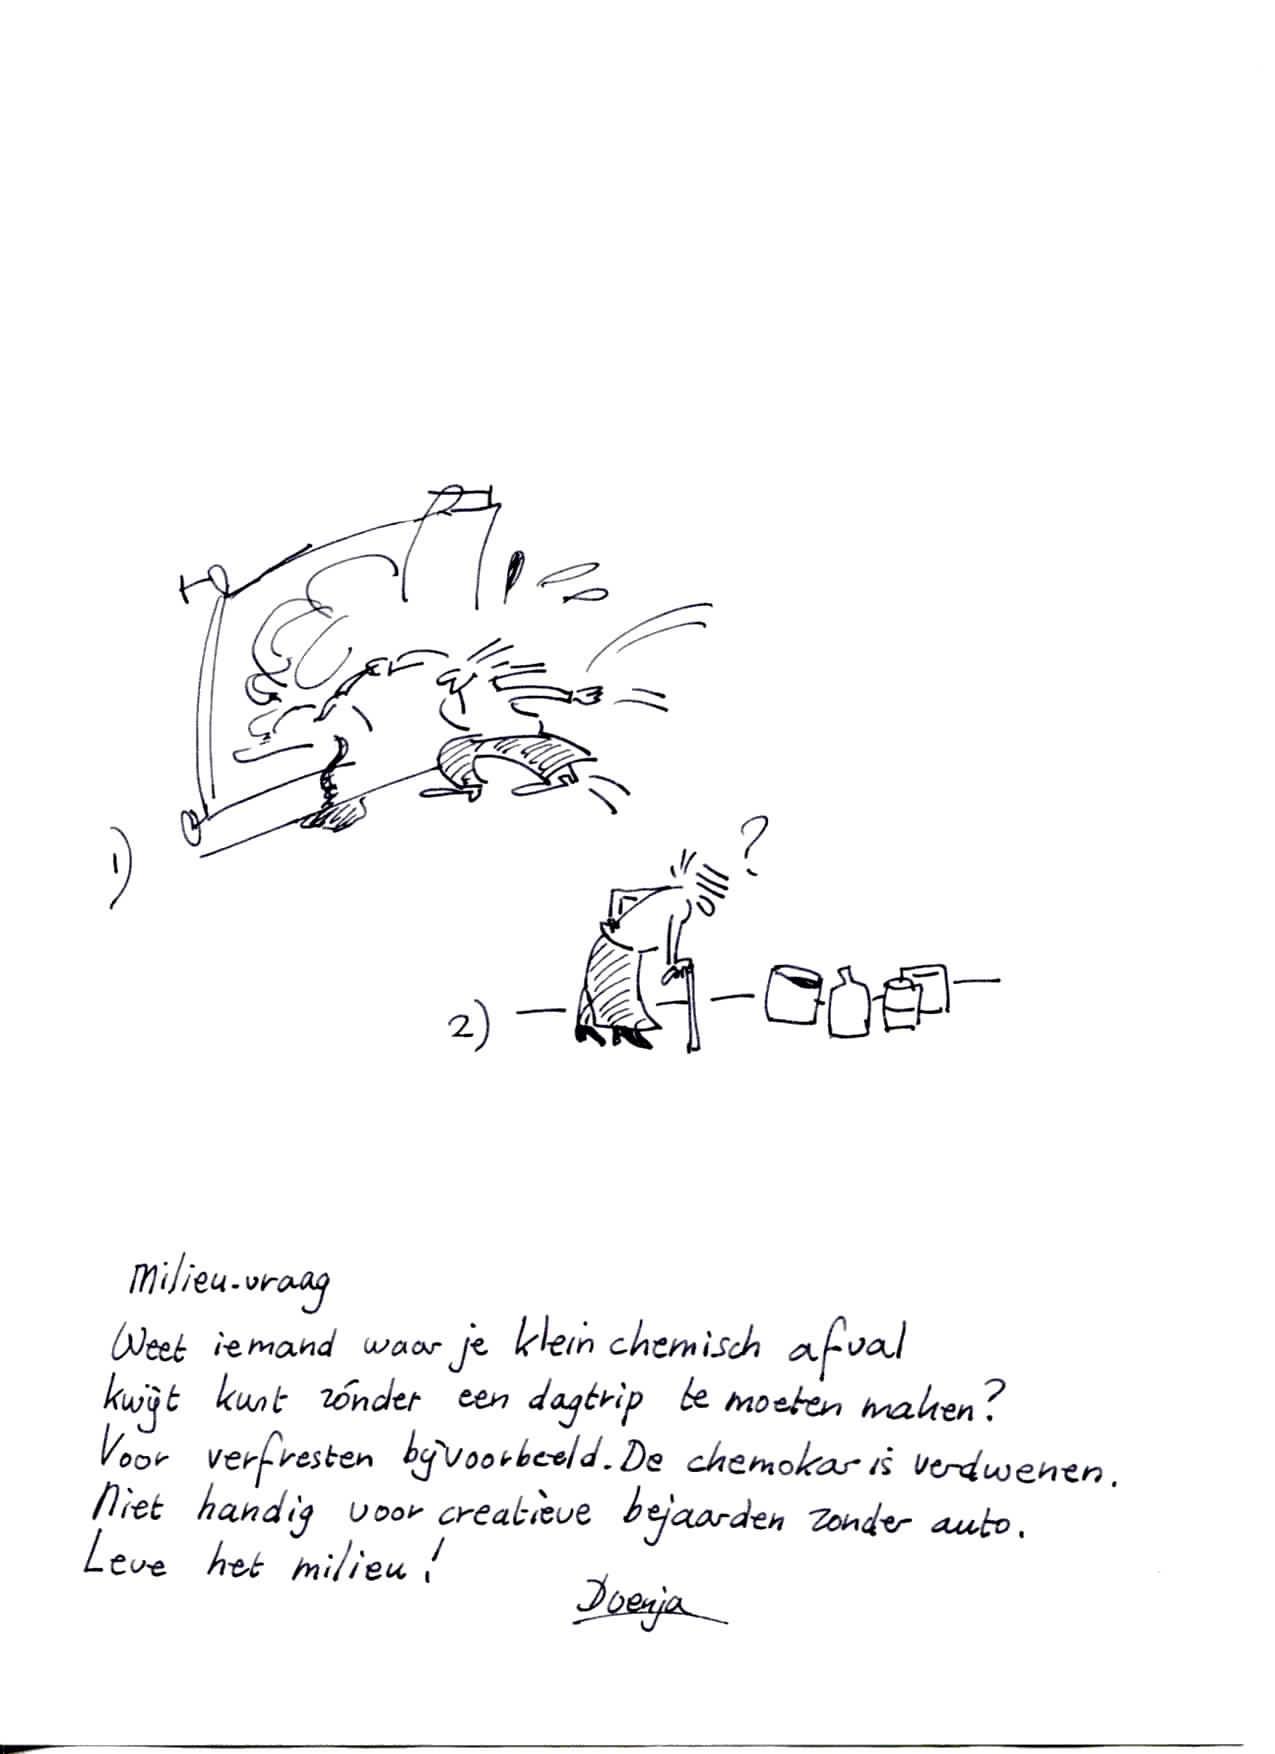 1)
?
2)
Milieu-vraag
Weet iemand waar je klein chemisch afval
kwijt kunt zónder een dagtrip te moeten maken?
Voor verfresten bijvoorbeeld. De chemokar is verdwenen.
Niet handig voor creatieve bejaarden zonder auto.
Leve het milieu!
Doenja